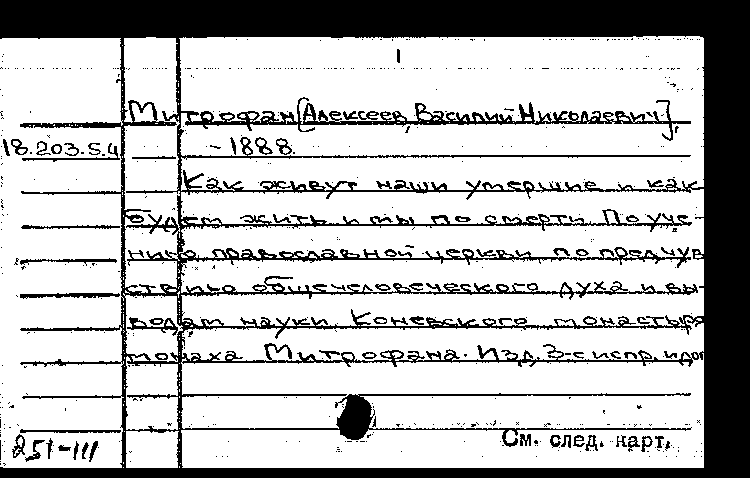 1
Митрофан [Алексеев, Василий Николаевич],
18.203.5.4 - 1888.
Как живут наши умершие и как
будем жить и мы по смерти. По уче-
нию православной церкви, по предчув
ствию общечеловеческого духа и вы-
водам науки Коневского монастыря
монаха Митрофана. Изд. 3-е испр. и доп
251-III
См. след. карт.